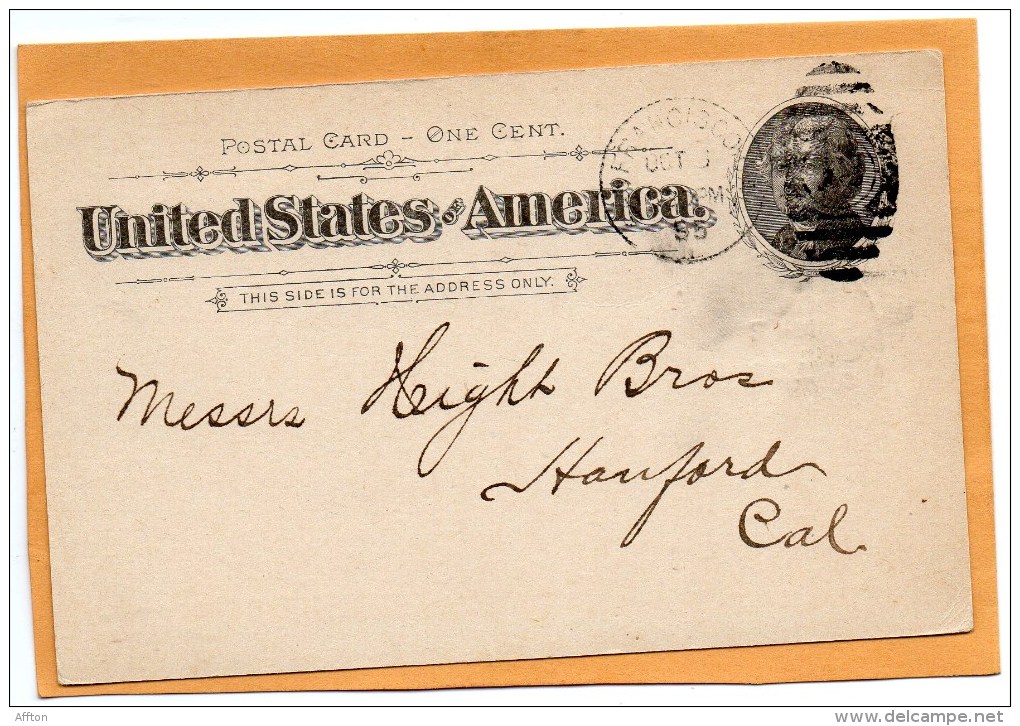 POSTAL CARD - ONE CENT.
United States OF America.
THIS SIDE IS FOR THE ADDRESS ONLY.
FRANCISCO
OCT
PM
95
Messrs Height Bros
Hanford
Cal.
Affton
www.delcampe.net